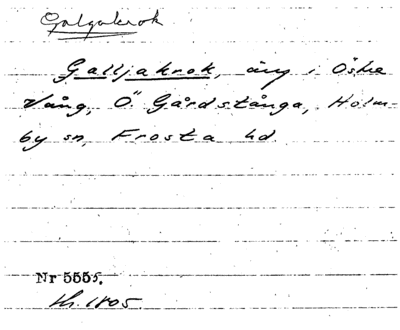 Galgakrok
Galljakrok, äng i Östra
Vång, Ö. Gårdstånga, Holm-
by sn, Frosta hd.
Nr 5555.
Sk. 1805